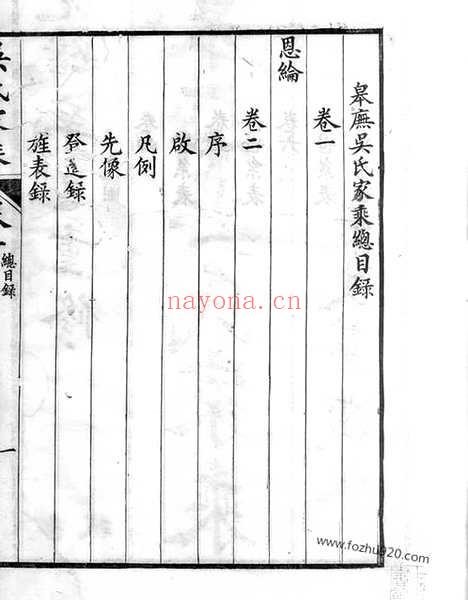 皋廡吳氏家乘總目錄
卷一
恩綸
卷二
序
啟
凡例
先像
登進錄
旌表錄
總目錄
一
nayona.cn
www.fozhu920.com